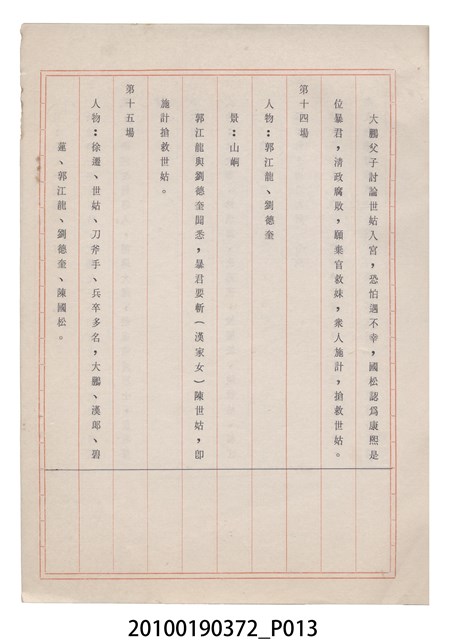 大鵬父子討論世姑入宮，恐怕遇不幸，國松認為康熙是
位暴君，清政腐敗，願棄官救妹，衆人施計，搶救世姑。
第十四場
人物：郭江龍、劉德奎
景：山峒
郭江龍與劉德奎聞悉，暴君要斬（漢家女）陳世姑，卽
施計搶救世姑。
第十五場
人物：徐遷、世姑、刀斧手、兵卒多名，大鵬、漢郎、碧
蓮、郭江龍、劉德奎、陳國松。
20100190372_P013